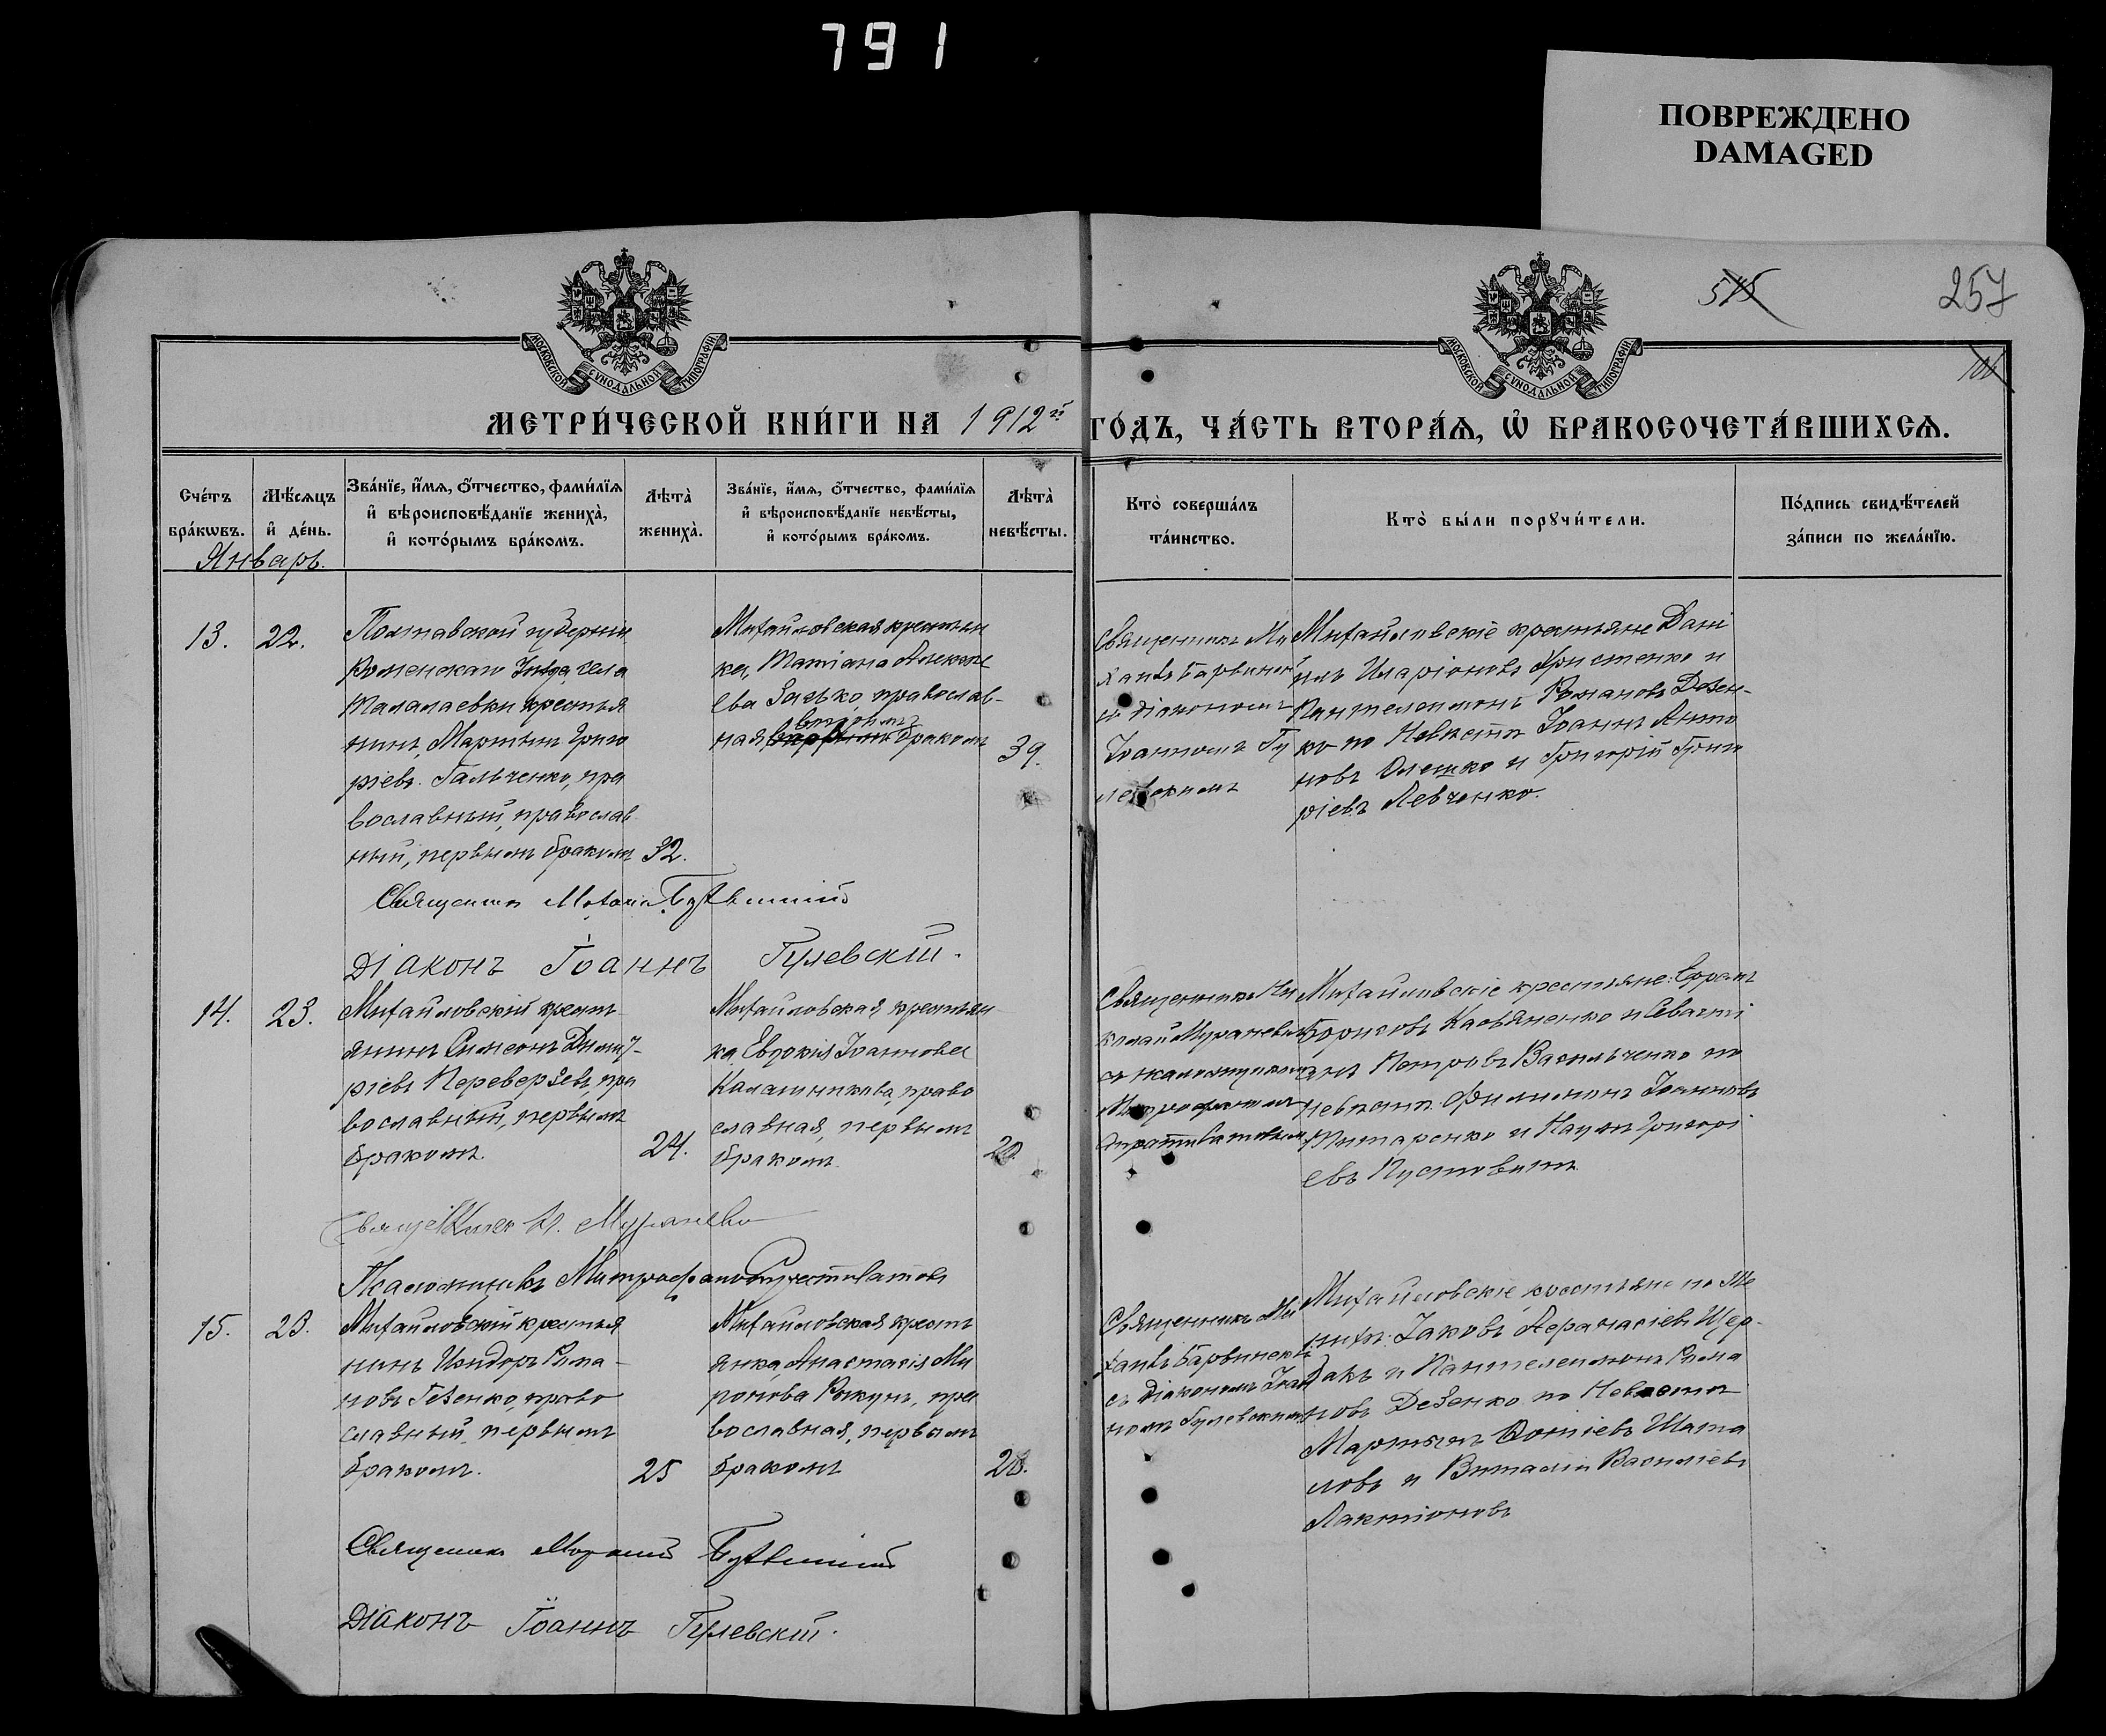 791
ПОВРЕЖДЕНО
DAMAGED
515
257
МОСКОВСКОЙ СѴНОДАЛЬНОЙ ТИПОГРАФІИ
МОСКОВСКОЙ СѴНОДАЛЬНОЙ ТИПОГРАФІИ
МЕТРИ́ЧЕСКОЙ КНИ́ГИ НА 1912й ГО́ДЪ, ЧА́СТЬ ВТОРА́Ѧ, Ѡ҆ БРАКОСОЧЕТА́ВШИХСѦ.
Сче́тъ бра́кѡвъ.
Мѣ́сѧцъ и҆ де́нь.
Зва́нїе, и҆́мѧ, ѻ҆́тчество, фами́лїѧ и҆ вѣроисповѣ́данїе жениха̀, и҆ кото́рымъ бра́комъ.
Лѣта̀ жениха̀.
Зва́нїе, и҆́мѧ, ѻ҆́тчество, фами́лїѧ и҆ вѣроисповѣ́данїе невѣ́сты, и҆ кото́рымъ бра́комъ.
Лѣта̀ невѣ́сты.
Кто̀ соверша́лъ та́инство.
Кто̀ бы́ли порꙋчи́тели.
По́дпись свидѣ́телей за́писи по жела́нїю.
Январь.
13.
22.
Полтавской губерніи
Роменскаго Уѣзда, села
Талалаевки крестья
нинъ, Мартинъ Григо
ріевъ Гальченко, пра
вославный, православ
ный, первымъ бракомъ
32.
Михайловская крестьян
ка, Татіана Алексѣе
ева Заѣько, православ-
вторымъ
ная бракомъ
39.
Священникъ Ми
хаилъ Барвинскій
съ діакономъ
Іоанномъ Гу
левскимъ
Михайловскіе крестьяне Дані
илъ Иларіоновъ Христенко и
Пантелеимонъ Романовъ Дѣзен-
ко по Невѣстѣ Іоаннъ Анто
новъ Олешко и Григорій Григо
ріевъ Левченко.
Священникъ
Діаконъ Іоаннъ Гулевскій.
14.
23.
Михайловскій кресть-
янинъ Симеонъ Димит-
ріевъ Переверзевъ, пра
вославный, первымъ
бракомъ.
24.
Михайловская крестьян
ка Евдокія Іоаннова
Калашникова, право
славная, первымъ
бракомъ
20
Священникъ Ни
колай
съ псаломщикомъ
Митрофаномъ
Михайловскіе крестьяне: Ефремъ
Борисовъ Касьяненко и Севасті
анъ Петровъ Васильченко по
невѣстѣ Филимонъ Іоанновъ
Титаренко и Наумъ Григорі
евъ Пустовитъ.
Священникъ Н.
Псаломщикъ Митрофанъ
15.
23.
Михайловскій крестья
нинъ Исидоръ Рома-
новъ Гезенко, право
славный, первымъ
бракомъ.
25
Михайловская кресть
янка, Анастасія Ми
ронова Рокунъ, пра
вославная, первымъ
бракомъ
20.
Священникъ Ми
хаилъ Барвинскій
съ діакономъ Іоан
номъ Гулевскимъ
Михайловскіе крестьяне по Же
нихѣ: Іаковъ Аѳанасіевъ Щер-
бакъ и Пантелеимонъ Рома
новъ Дезенко по Невѣстѣ
Мартынъ Фотіевъ Шата
ловъ и Виталій Василіевъ
Лактіоновъ
Священникъ
Діаконъ Іоаннъ Гулевскій.